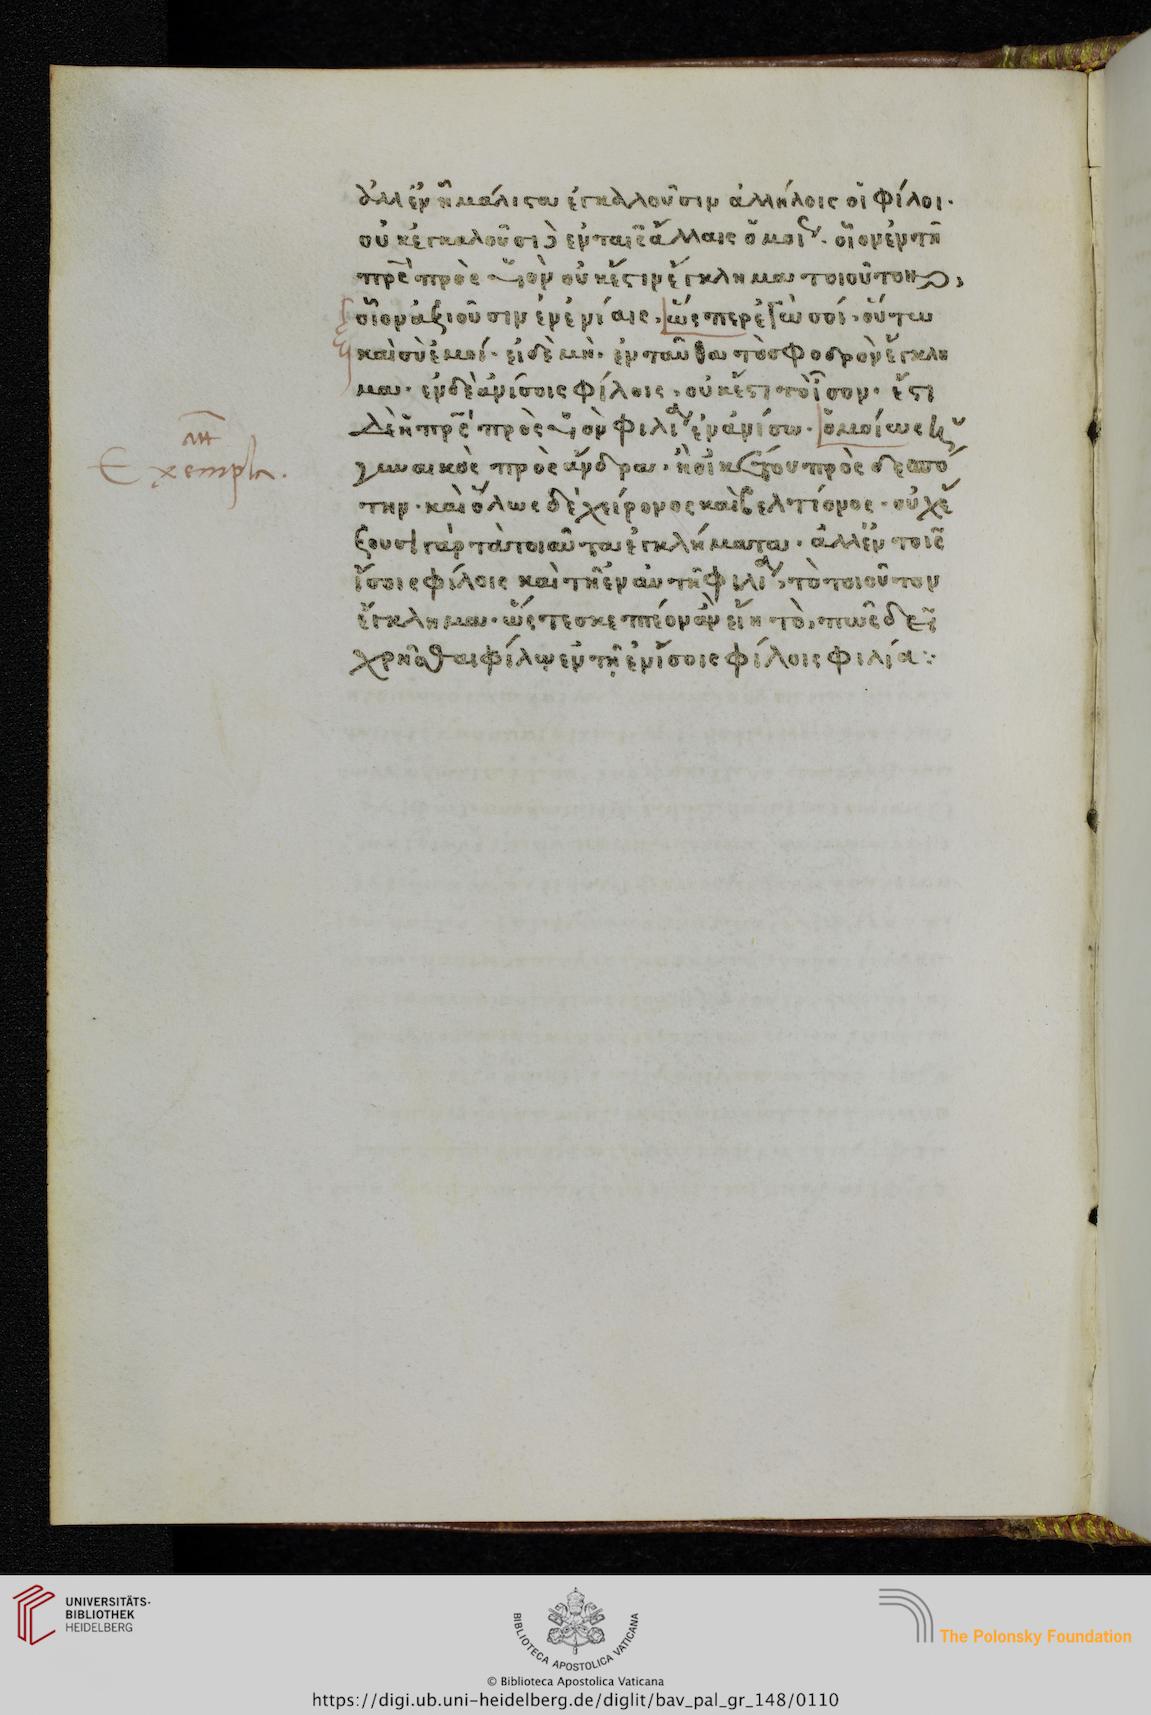 ἀλλ' ἐν ᾗ μάλιστα ἐγκαλοῦσιν ἀλλήλοις οἱ φίλοι·
οὐκ ἐγκαλοῦσι δ' ἐν ταῖς ἄλλαις ὁμοί· οἷον ἐν τῇ
πρς πρὸς υἱὸν οὐκ ἔστιν ἔγκλημα τοιοῦτον,
οἷον ἀξιοῦσιν ἐν ἐνίαις, ὥσπερ ἐγὼ σοί, οὕτω
καὶ σὺ ἐμοί· εἰ δὲ μὴ· ἐνταῦθα τὸ σφοδρὸν ἔγκλη
μα· ἐν δὲ ἀνίσοις φίλοις, οὐκ ἔστι τὸ ἴσον· ἔστι
δὲ ἡ πρς πρὸς υἱὸν φιλία ἐν ἀνίσω· ὁμοίως καὶ
γυναικὸς πρὸς ἄνδρα· ἢ οἰκέτου πρὸς δεσπό
την· καὶ ὅλως δὲ χείρονος καὶ βελτίονος· οὐχ ἕ
ξουσι γὰρ τὰ τοιαῦτα ἐγκλήματα· ἀλλ' ἐν τοῖς
ἴσοις φίλοις καὶ τῇ ἐν αὐτῇ φιλία, τὸ τοιοῦτον
ἔγκλημα· ὥστε σκεπτέον ἂν εἴη τὸ, πῶς δεῖ
χρῆσθαι φίλῳ ἐν τῇ ἐν ἴσοις φίλοις φιλία:
Exempla.
UNIVERSITÄTS-
BIBLIOTHEK
HEIDELBERG
BIBLIOTECA APOSTOLICA VATICANA
© Biblioteca Apostolica Vaticana
The Polonsky Foundation
https://digi.ub.uni-heidelberg.de/diglit/bav_pal_gr_148/0110